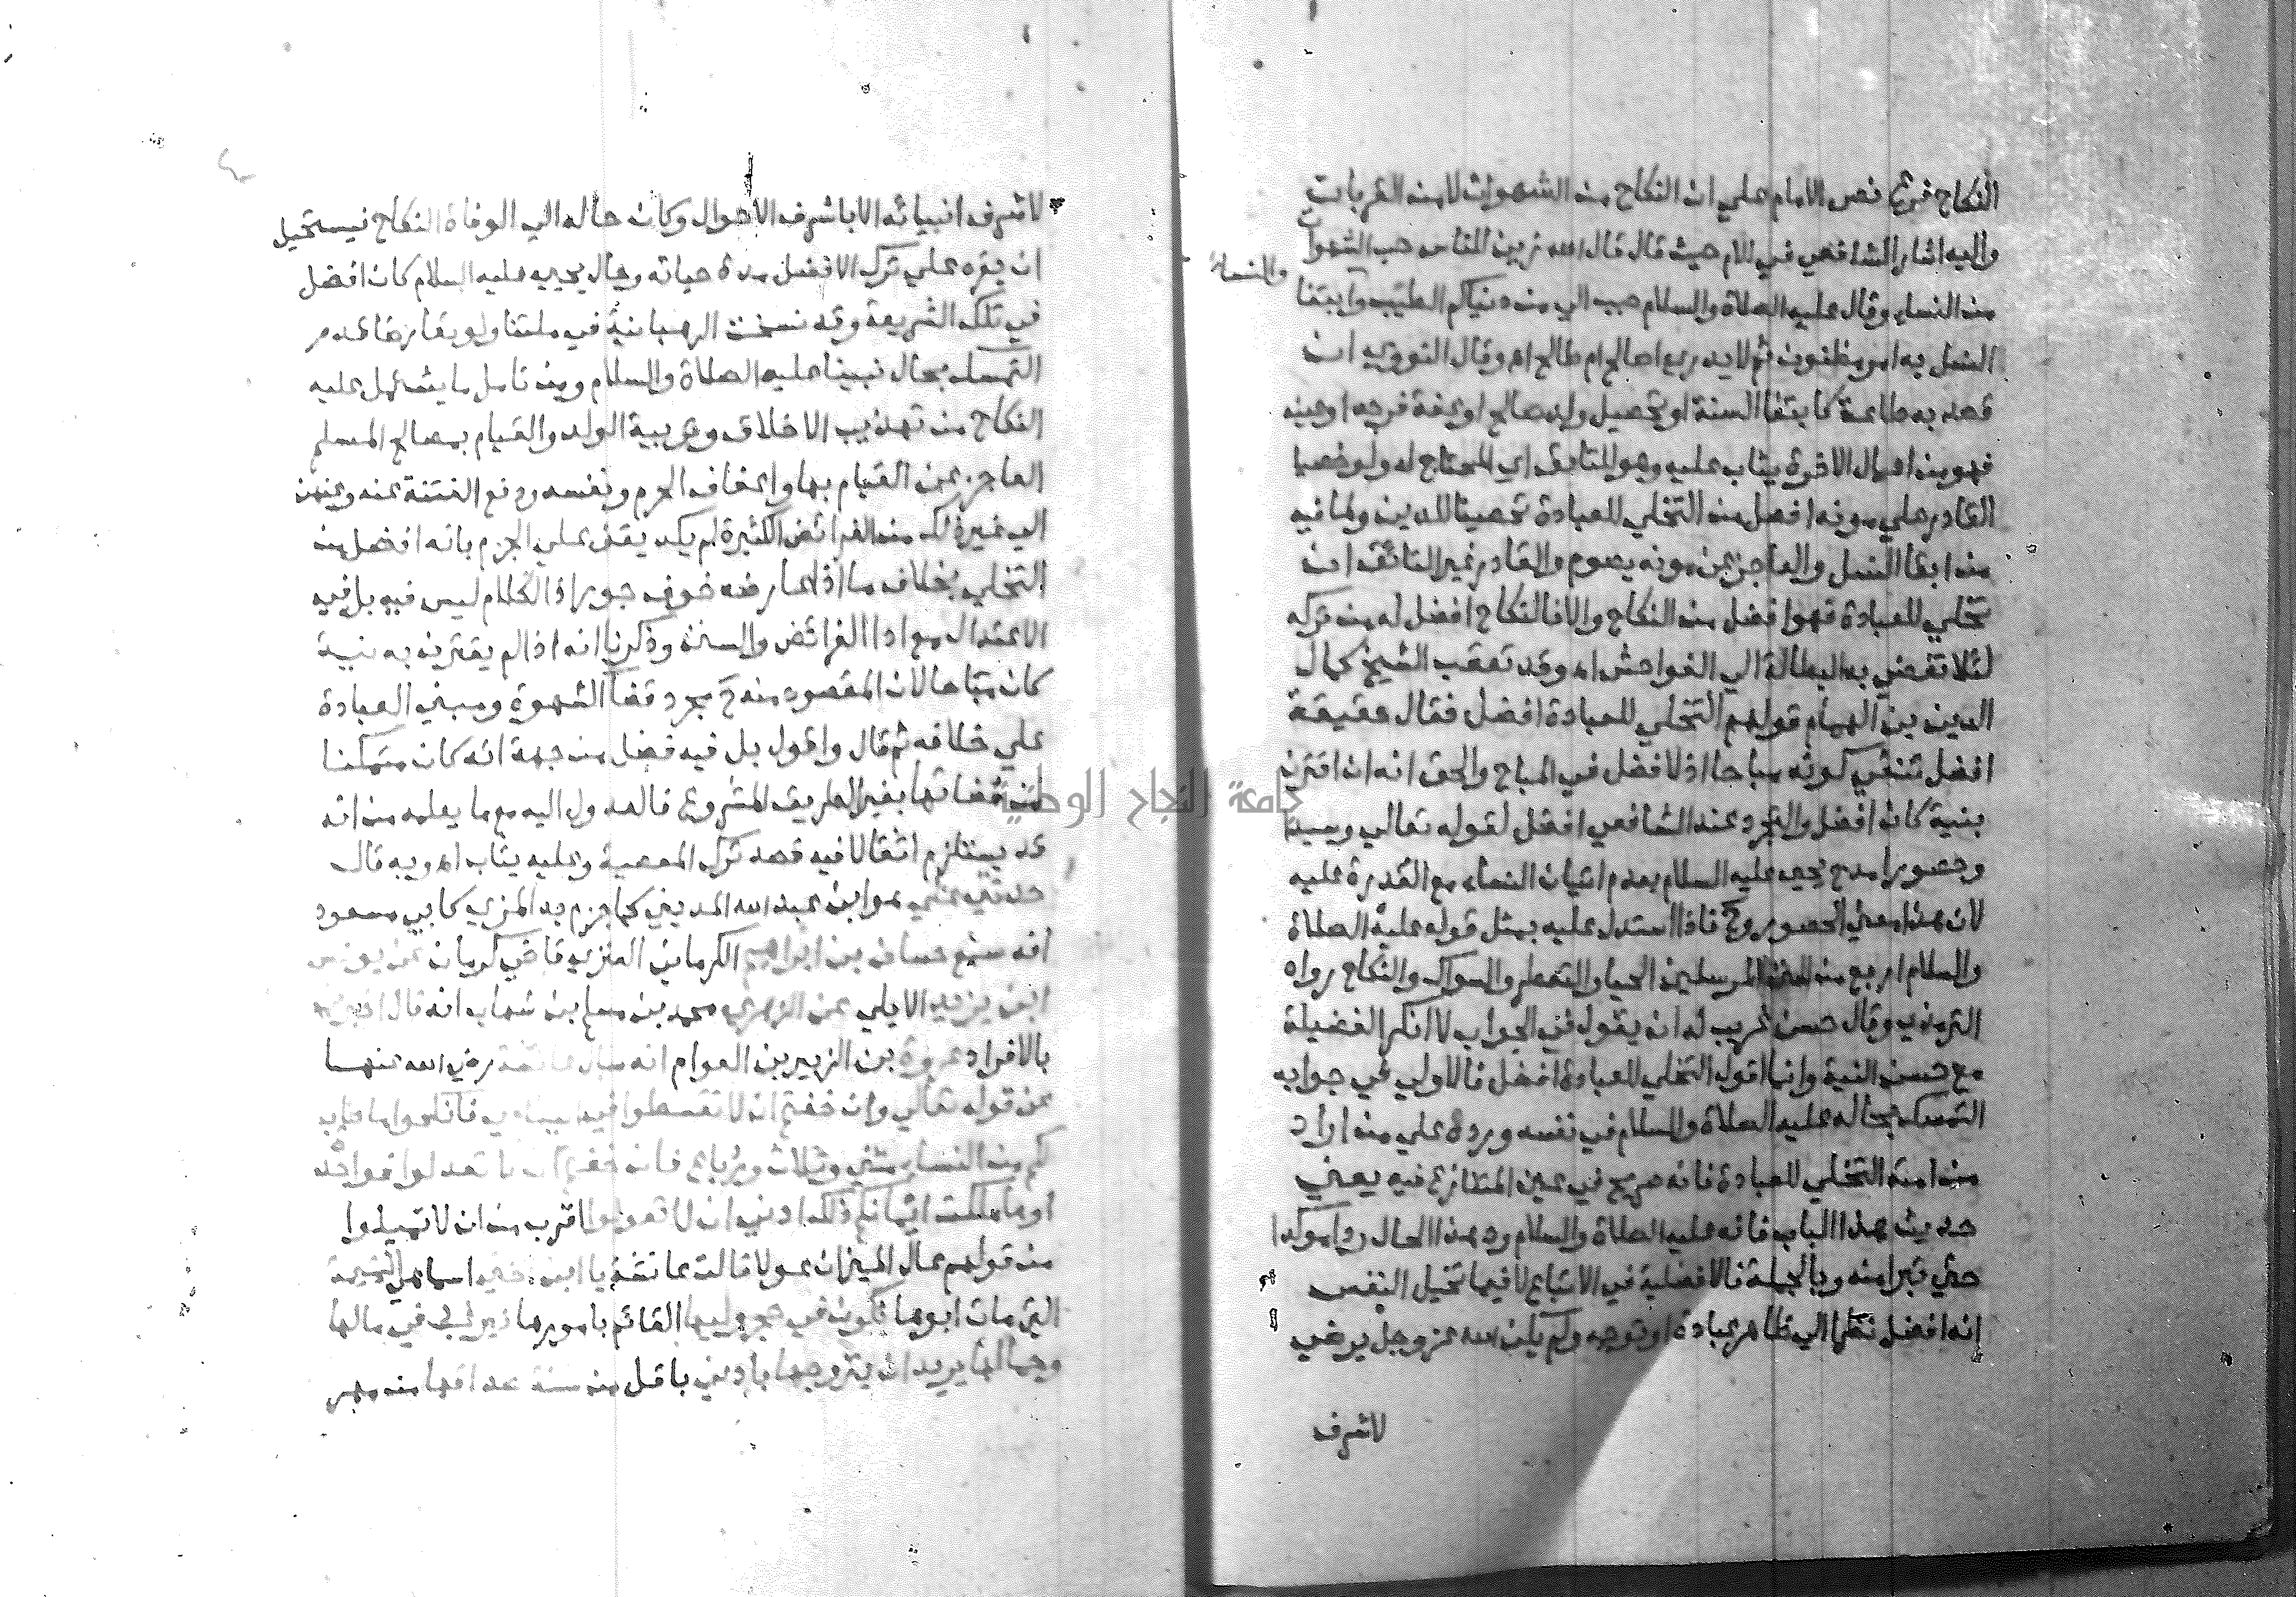 النكاح فرع نص الامام علي ان النكاح من الشهوات لا من القربات
واليه اشار الشافعي في الام حيث قال قال الله زين للناس حب الشهوات
من النساء وقال عليه الصلاة والسلام حبب الي من دنياكم الطيب وابتغا
والنساء
النسل به امر مظنون ثم لا يدري اصالح ام طالح اه وقال النووي ان
قصد به طاعة كابتغا السنة او تحصيل ولد صالح او عفة فرجه او عينه
فهو من اعمال الاخرة يثاب عليه وهو للتايق اي المحتاج له ولو خصيا
القادر علي مونه افضل من التخلي للعبادة تحصينا للدين ولما فيه
من ابقا النسل والعاجز عن مونه يصوم والقادر غير التائق ان
تخلي للعبادة فهو افضل من النكاح والا فالنكاح افضل له من تركه
لئلا تفضي به البطالة الي الفواحش اه وقد تعقب الشيخ كمال
الدين بن الهمام قولهم التخلي للعبادة افضل فقال حقيقة
افضل تنفي كونه مباحا اذ لا فضل في المباح والحق انه ان اقترن
بنية كان افضل والتجرد عند الشافعي افضل لقوله تعالي وسيدا
وحصورا مدح يحيي عليه السلام بعدم اتيان النساء مع القدرة عليه
لان هذا معني الحصور وح فاذا استدل عليه بمثل قوله عليه الصلاة
والسلام اربع من سنن المرسلين الحيا والتعطر والسواك والنكاح رواه
الترمذي وقال حسن غريب له ان يقول في الجواب لا انكر الفضيلة
مع حسن النية وانما اقول التخلي للعبادة افضل فالاولي في جوابه
التمسك بحاله عليه الصلاة والسلام في نفسه ورده علي من اراد
من امته التخلي للعبادة فانه صريح في عين المتنازع فيه يعني
حديث هذا الباب فانه عليه الصلاة والسلام رد هذا الحال ردا موكدا
حتي تبرا منه وبالجملة فالافضلية في الاتباع لا فيما تخيل النفس
انه افضل نظرا الي ظاهر عبادة او توجه ولم يكن الله عز وجل يرضي
لاشرف
لاشرف انبيائه الا باشرف الاحوال وكان حاله الي الوفاة النكاح فيستحيل
ان يقره علي ترك الافضل مدة حياته وحال يحيي عليه السلام كان افضل
في تلك الشريعة وقد نسخت الرهبانية في ملتنا ولو تعارضا قدم
التمسك بحال نبينا عليه الصلاة والسلام ومن تامل ما يشتمل عليه
النكاح من تهذيب الاخلاق وتربية الولد والقيام بمصالح المسلم
العاجز عن القيام بها واعفاف الحرم ونفسه ودفع الفتنة عنه وعنهن
الي غير ذلك من الفرائض الكثيرة لم يكد يقف علي الجزم بانه افضل من
التخلي بخلاف ما اذا عارضه خوف جور اذ الكلام ليس فيه بل في
الاعتدال مع ادا الفرائض والسنن وذكرنا انه اذا لم يقترن به نية
كان مباحا لان المقصود منه ح مجرد قضا الشهوة ومبني العبادة
علي خلافه ثم قال واقول بل فيه فضل من جهة انه كان متمكنا
من قضائها بغير الطريق المشروع فالعدول اليه مع ما يعلمه من انه
قد يستلزم اثقالا فيه قصد ترك المعصية وعليه يثاب اه وبه قال
حدثني علي هو ابن عبد الله المديني كما جزم به المزي كابي مسعود
انه سمع حسان بن ابراهيم الكرماني العنزي قاضي كرمان عن يونس
ابن يزيد الايلي عن الزهري محمد بن مسلم بن شهاب انه قال اخبرني
بالافراد عروة بن الزبير بن العوام انه سال عائشة رضي الله عنها
عن قوله تعالي وان خفتم ان لا تقسطوا في اليتامي فانكحوا ما طاب
لكم من النساء مثني وثلاث ورباع فان خفتم ان لا تعدلوا فواحدة
او ما ملكت ايمانكم ذلك ادني ان لا تعولوا اقرب من ان لا تميلوا
من قولهم عال الميزان عولا قالت عائشة يا ابن اختي اسما هي اليتيمة
التي مات ابوها تكون في حجر وليها القائم بامورها فيرغب في مالها
وجمالها يريد ان يتزوجها بادني باقل من سنة صداقها من مهر